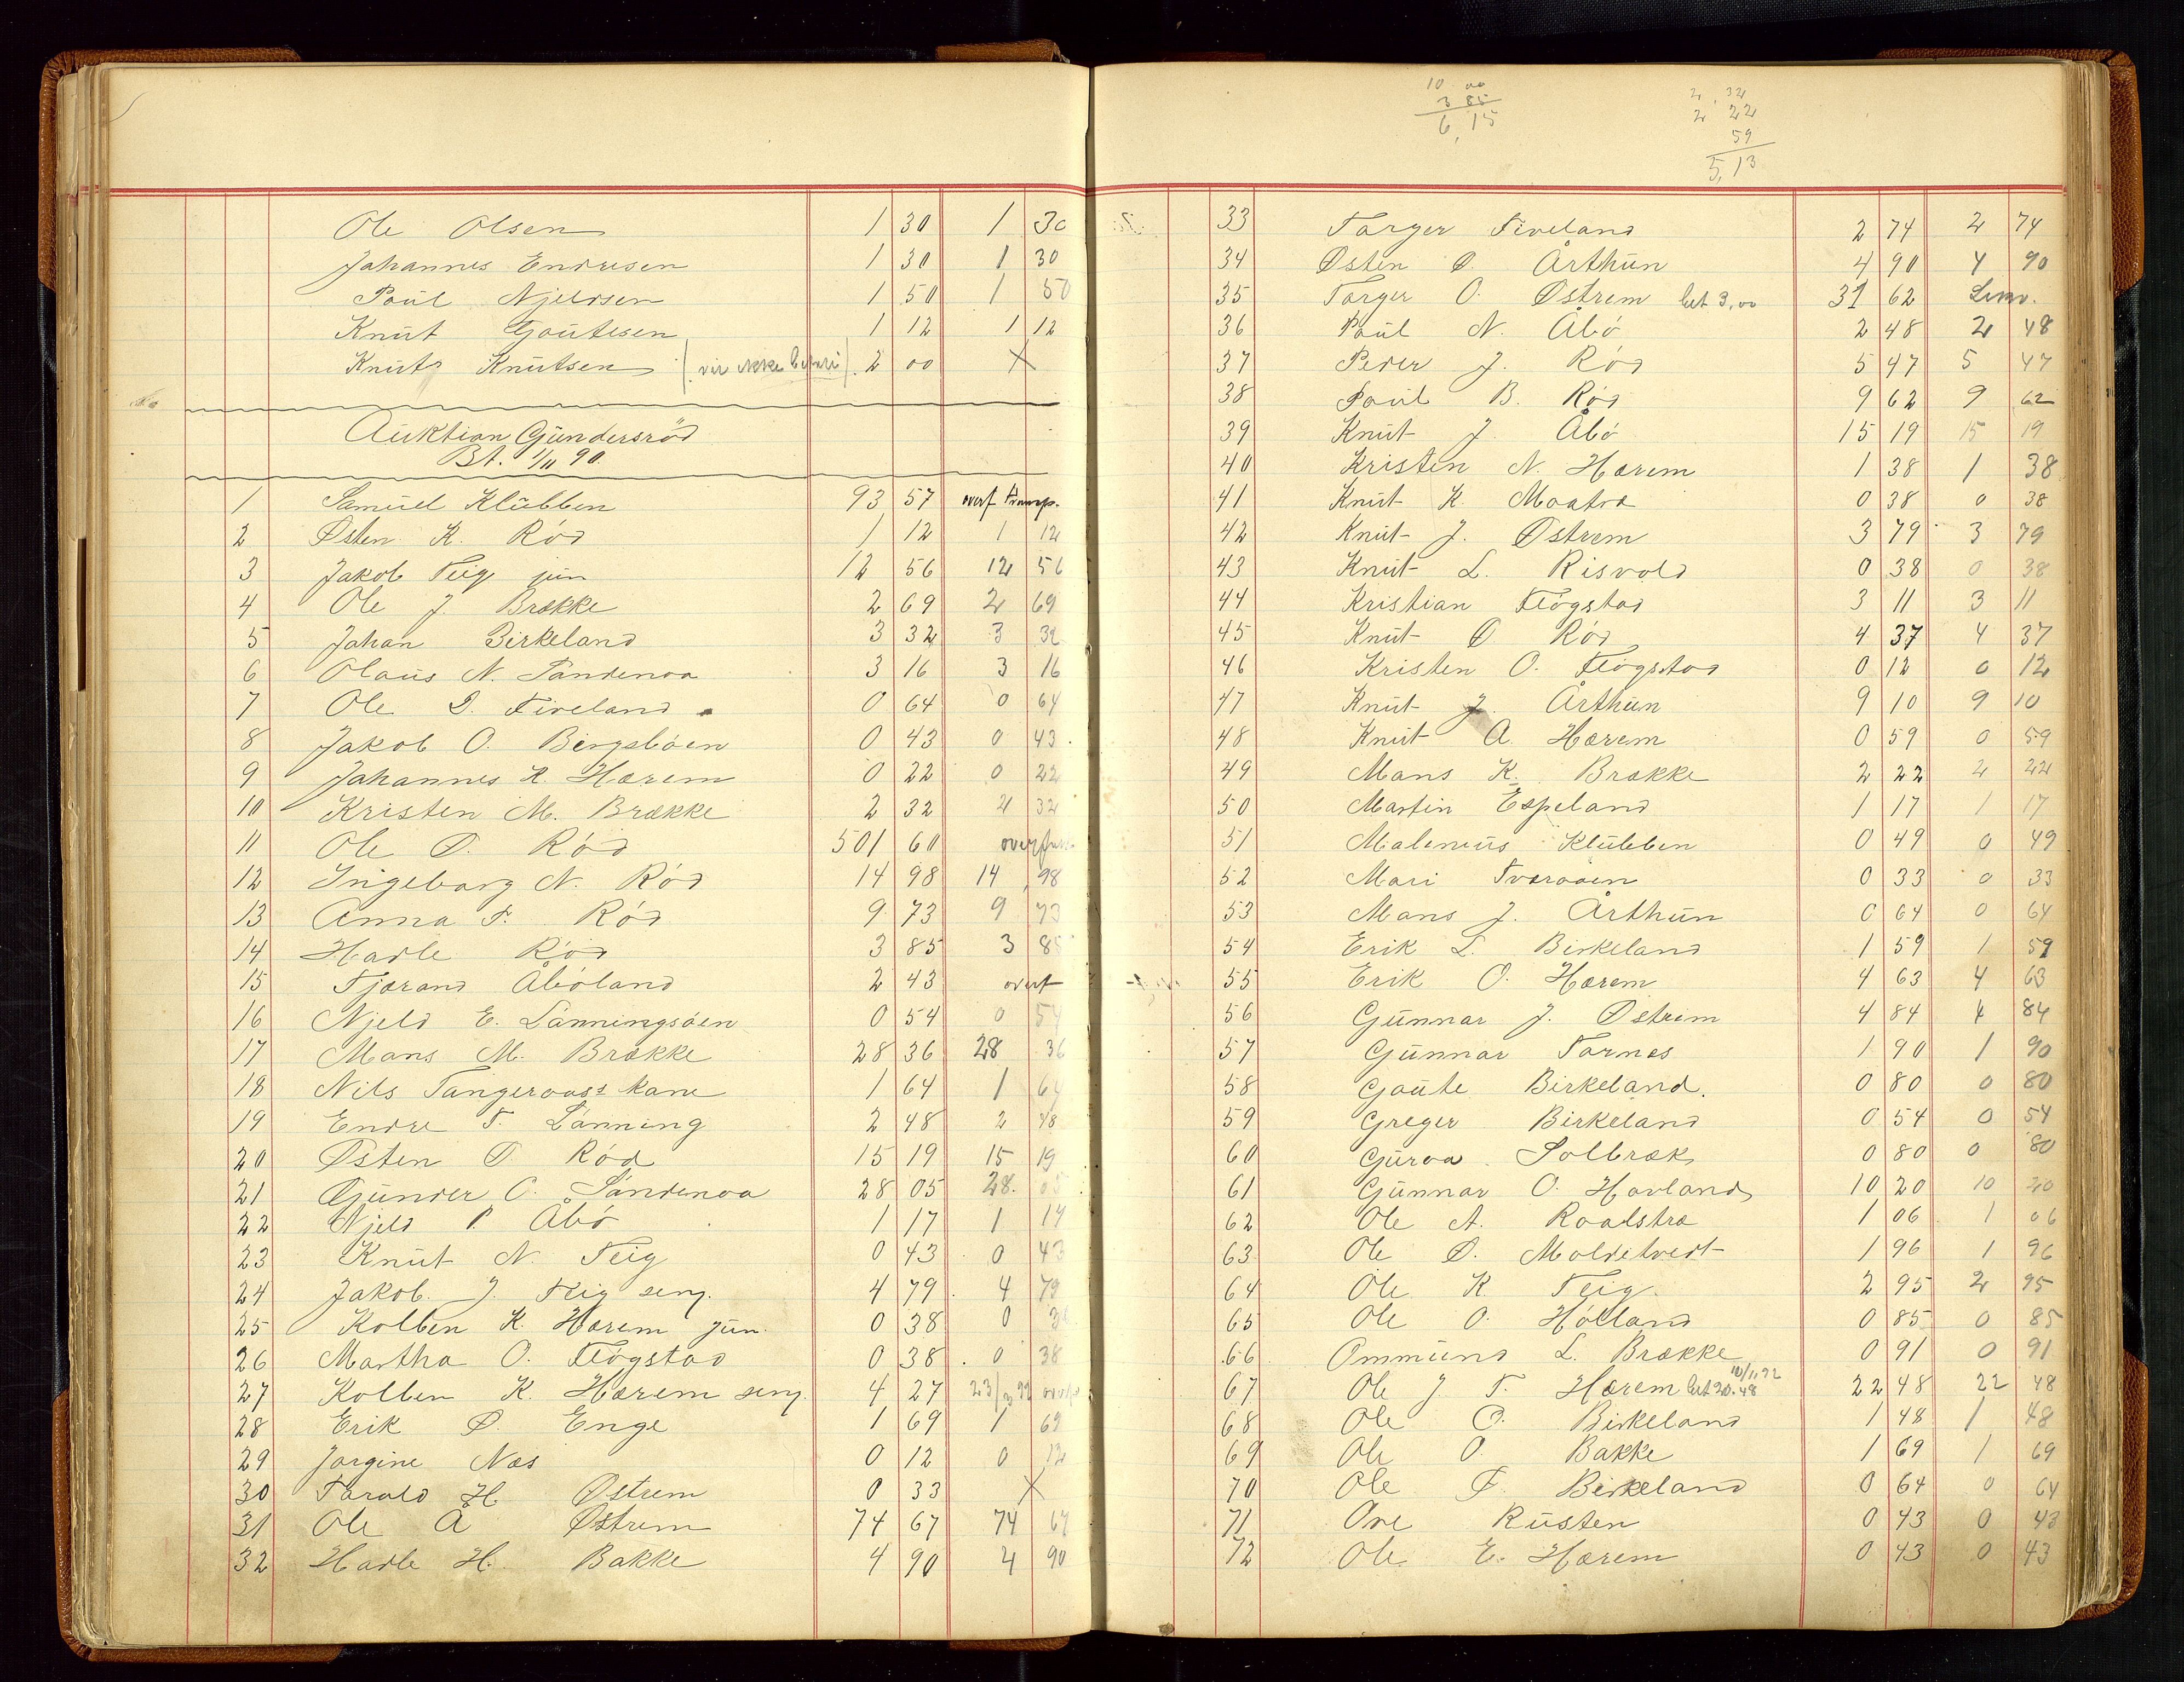 Ole Olsen 1 30 1 30
Johannes Endresen 1 30 1 30
Paul Njeldsen 1 50 1 50
Knut Goutesen 1 12 1 12
Knut Knutsen (vil ikke betale) 2 00 X
Auktion Gundersröd
Bt. 1/11 90.
1 Samuel Klubben 93 57 overf
2 Østen K. Rød 1 12 1 12
3 Jakob Teig jun 12 56 12 56
4 Ole J. Brække 2 69 2 69
5 Johan Birkeland 3 32 3 32
6 Olaus N. Sandenoa 3 16 3 16
7 Ole D. Tireland 0 64 0 64
8 Jakob O. Bergsbøen 0 43 0 43
9 Johannes K. Hærem 0 22 0 22
10 Kristen M. Brække 2 32 2 32
11 Ole Ø. Rød 501 60
12 Ingeborg N. Rød 14 98 14 98
13 Anna T. Rød 9 73 9 73
14 Hadle Rød 3 85 3 85
15 Tjærand Åbøland 2 43 overf
16 Njeld E. Lønningsåen 0 54 0 54
17 Mans M. Brække 28 36 28 36
18 Nils Tangeraass kone 1 64 1 64
19 Endre T. Lønning 2 48 2 48
20 Østen Ø. Rød 15 19 15 19
21 Gunder O. Sandenoa 28 05 28. 05
22 Njeld P. Åbø 1 17 1 17
23 Knut N. Teig 0 43 0 43
24 Jakob. J. Teig senj. 4 79 4 79
25 Kolben K. Hærem jun. 0 38 0 38
26 Martha O. Fløgstad 0 38 0 38
27 Kolben K. Hærem senj. 4 27
28 Erik Ø. Enge 1 69 1 69
29 Jorgine Næs 0 12 0 12
30 Tarald H. Østrem 0 33 X
31 Ole Å Østrem 74 67 74 67
32 Hadle H. Bakke 4 90 4 90
10 00
3 85
6,15
2,32
2 22
59
5,13
33 Torger Tireland 2 74 2 74
34 Østen Ø. Årthun 4 90 4 90
35 Torger O. Østrem bet 3,00 31 62
36 Paul N. Åbø 2 48 2 48
37 Peder J. Rød 5 47 5 47
38 Paul B. Rød 9 62 9 62
39 Knut J. Åbø 15 19 15 19
40 Kristen N. Hærem 1 38 1 38
41 Knut K. Moatra 0 38 0 38
42 Knut J. Østrem 3 79 3 79
43 Knut L. Risvold 0 38 0 38
44 Kristian Fløgstad 3 11 3 11
45 Knut Ø Rød 4 37 4 37
46 Kristen O. Fløgstad 0 12 0 12
47 Knut J. Årthun 9 10 9 10
48 Knut A. Hærem 0 59 0 59
49 Mans K. Brække 2 22 2 22
50 Martin Espeland 1 17 1 17
51 Malenius Klubben 0 49 0 49
52 Mari Tværaaen 0 33 0 33
53 Mans J. Årthun 0 64 0 64
54 Erik L. Birkeland 1 59 1 59
55 Erik O. Hærem 4 63 4 63
56 Gunnar J. Østrem 4 84 4 84
57 Gunnar Tornes 1 90 1 90
58 Goute Birkeland. 0 80 0 80
59 Greger Birkeland 0 54 0 54
60 Guroa Solbræk 0 80 0 80
61 Gunnar O. Havland 10 20 10 20
62 Ole A. Roalstra 1 06 1 06
63 Ole Ø. Moldetvedt 1 96 1 96
64 Ole K. Teig 2 95 2 95
65 Ole O. Hølland 0 85 0 85
66 Ommund L. Brække 0 91 0 91
67 Ole J. T. Hærem bet 20.48 22 48 22 48
68 Ole O. Birkeland 1 48 1 48
69 Ole O. Bakke 1 69 1 69
70 Ole T. Birkeland 0 64 0 64
71 Ove Rusten 0 43 0 43
72 Ole E. Hærem 0 43 0 43